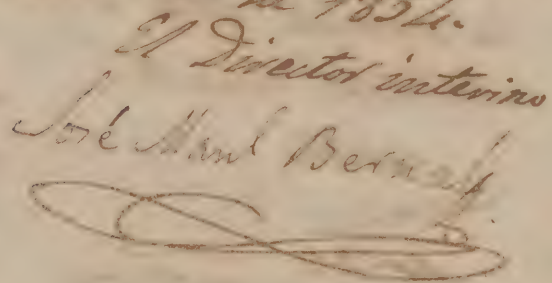 de 1834.
El Director interino
José Manl Bernal